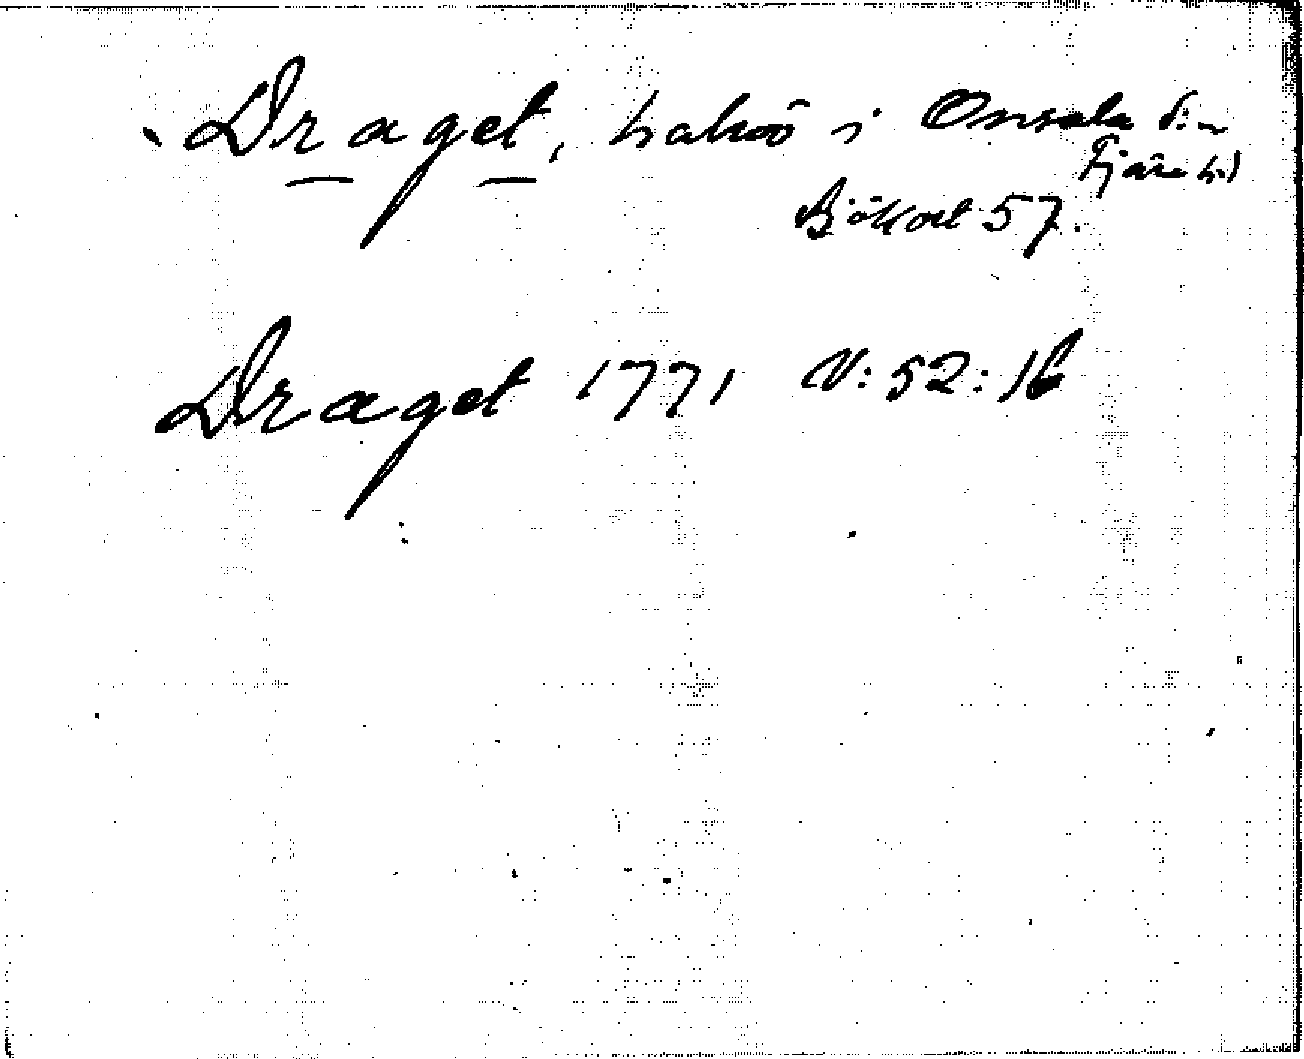 Draget, halvö i Onsala sn
Fjäre hd
Sjökort 57.
Draget 1771 V:52:16